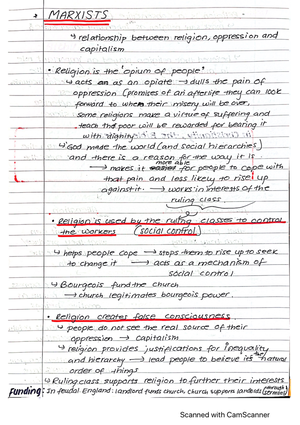 MARXISTS
↳ relationship between religion, oppression and
capitalism
• Religion is the 'opium of people'
↳ acts as an opiate → dulls the pain of
oppression (promises of an afterlife they can look
forward to when their misery will be over.
some religions make a virtue of suffering and
teach the poor will be rewarded for bearing it
with dignity
↳ God made the world (and social hierarchies)
and there is a reason for the way it is
more able
→ makes it for people to cope with
that pain and less likely to rise up
against it. → works in interests of the
ruling class
• Religion is used by the ruling classes to control
the workers (social control)
↳ helps people cope → stops them to rise up to seek
to change it → acts as a mechanism of
social control
↳ Bourgeois fund the church
→ church legitimates bourgeois power.
• Religion creates false consciousness
↳ people do not see the real source of their
oppression → capitalism
↳ religion provides justifications for inequality
and hierarchy → lead people to believe its the natural
order of things
↳ Ruling class supports religion to further their interests
Funding: In feudal England: landlord funds church, church supports landlords (through sermons)
Scanned with CamScanner